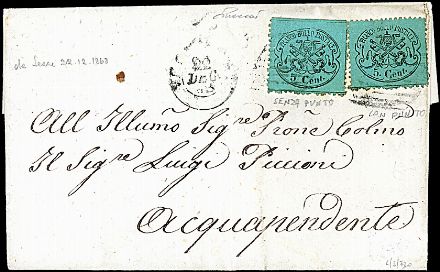 da Jesi 22.12.1868
22
DEC
68
FRANCO BOLLO POSTALE
5 Cent
FRANCO BOLLO POSTALE
5 Cent
SENZA PUNTO
CON PUNTO
All Illumo Sigre Prone Colmo
Il Sigre Luigi Piccioni
Acquapendente